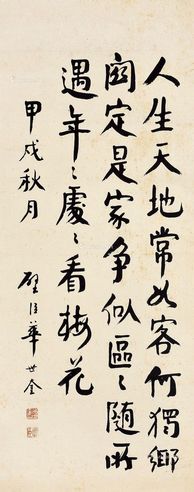 人生天地常如客何獨鄉
關定是家爭似區〻隨所
遇年〻處〻看梅花
甲戌秋月
華世奎